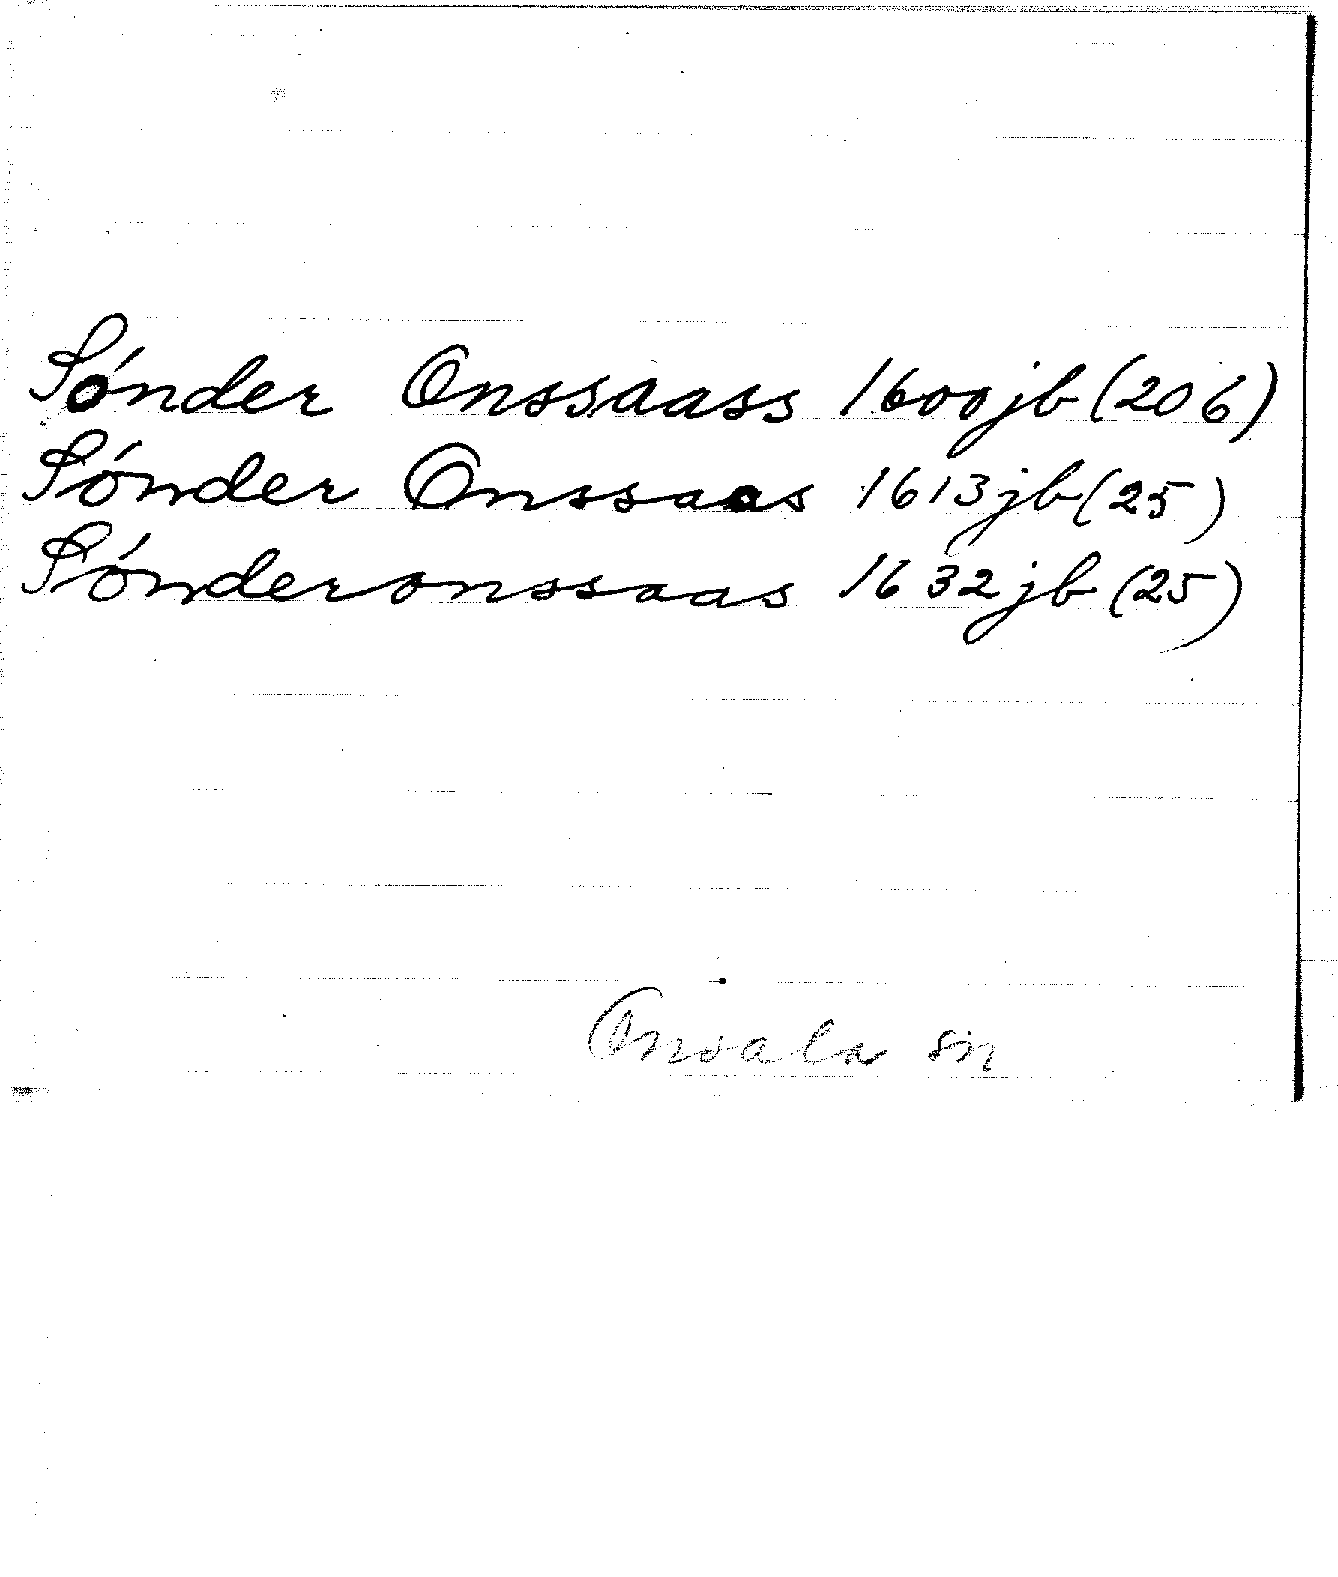 Sónder Onssaass 1600jb(206)
Sónder Onssaas 1613jb(25)
Sónderonssaas 1632jb(25)
Onsala sn